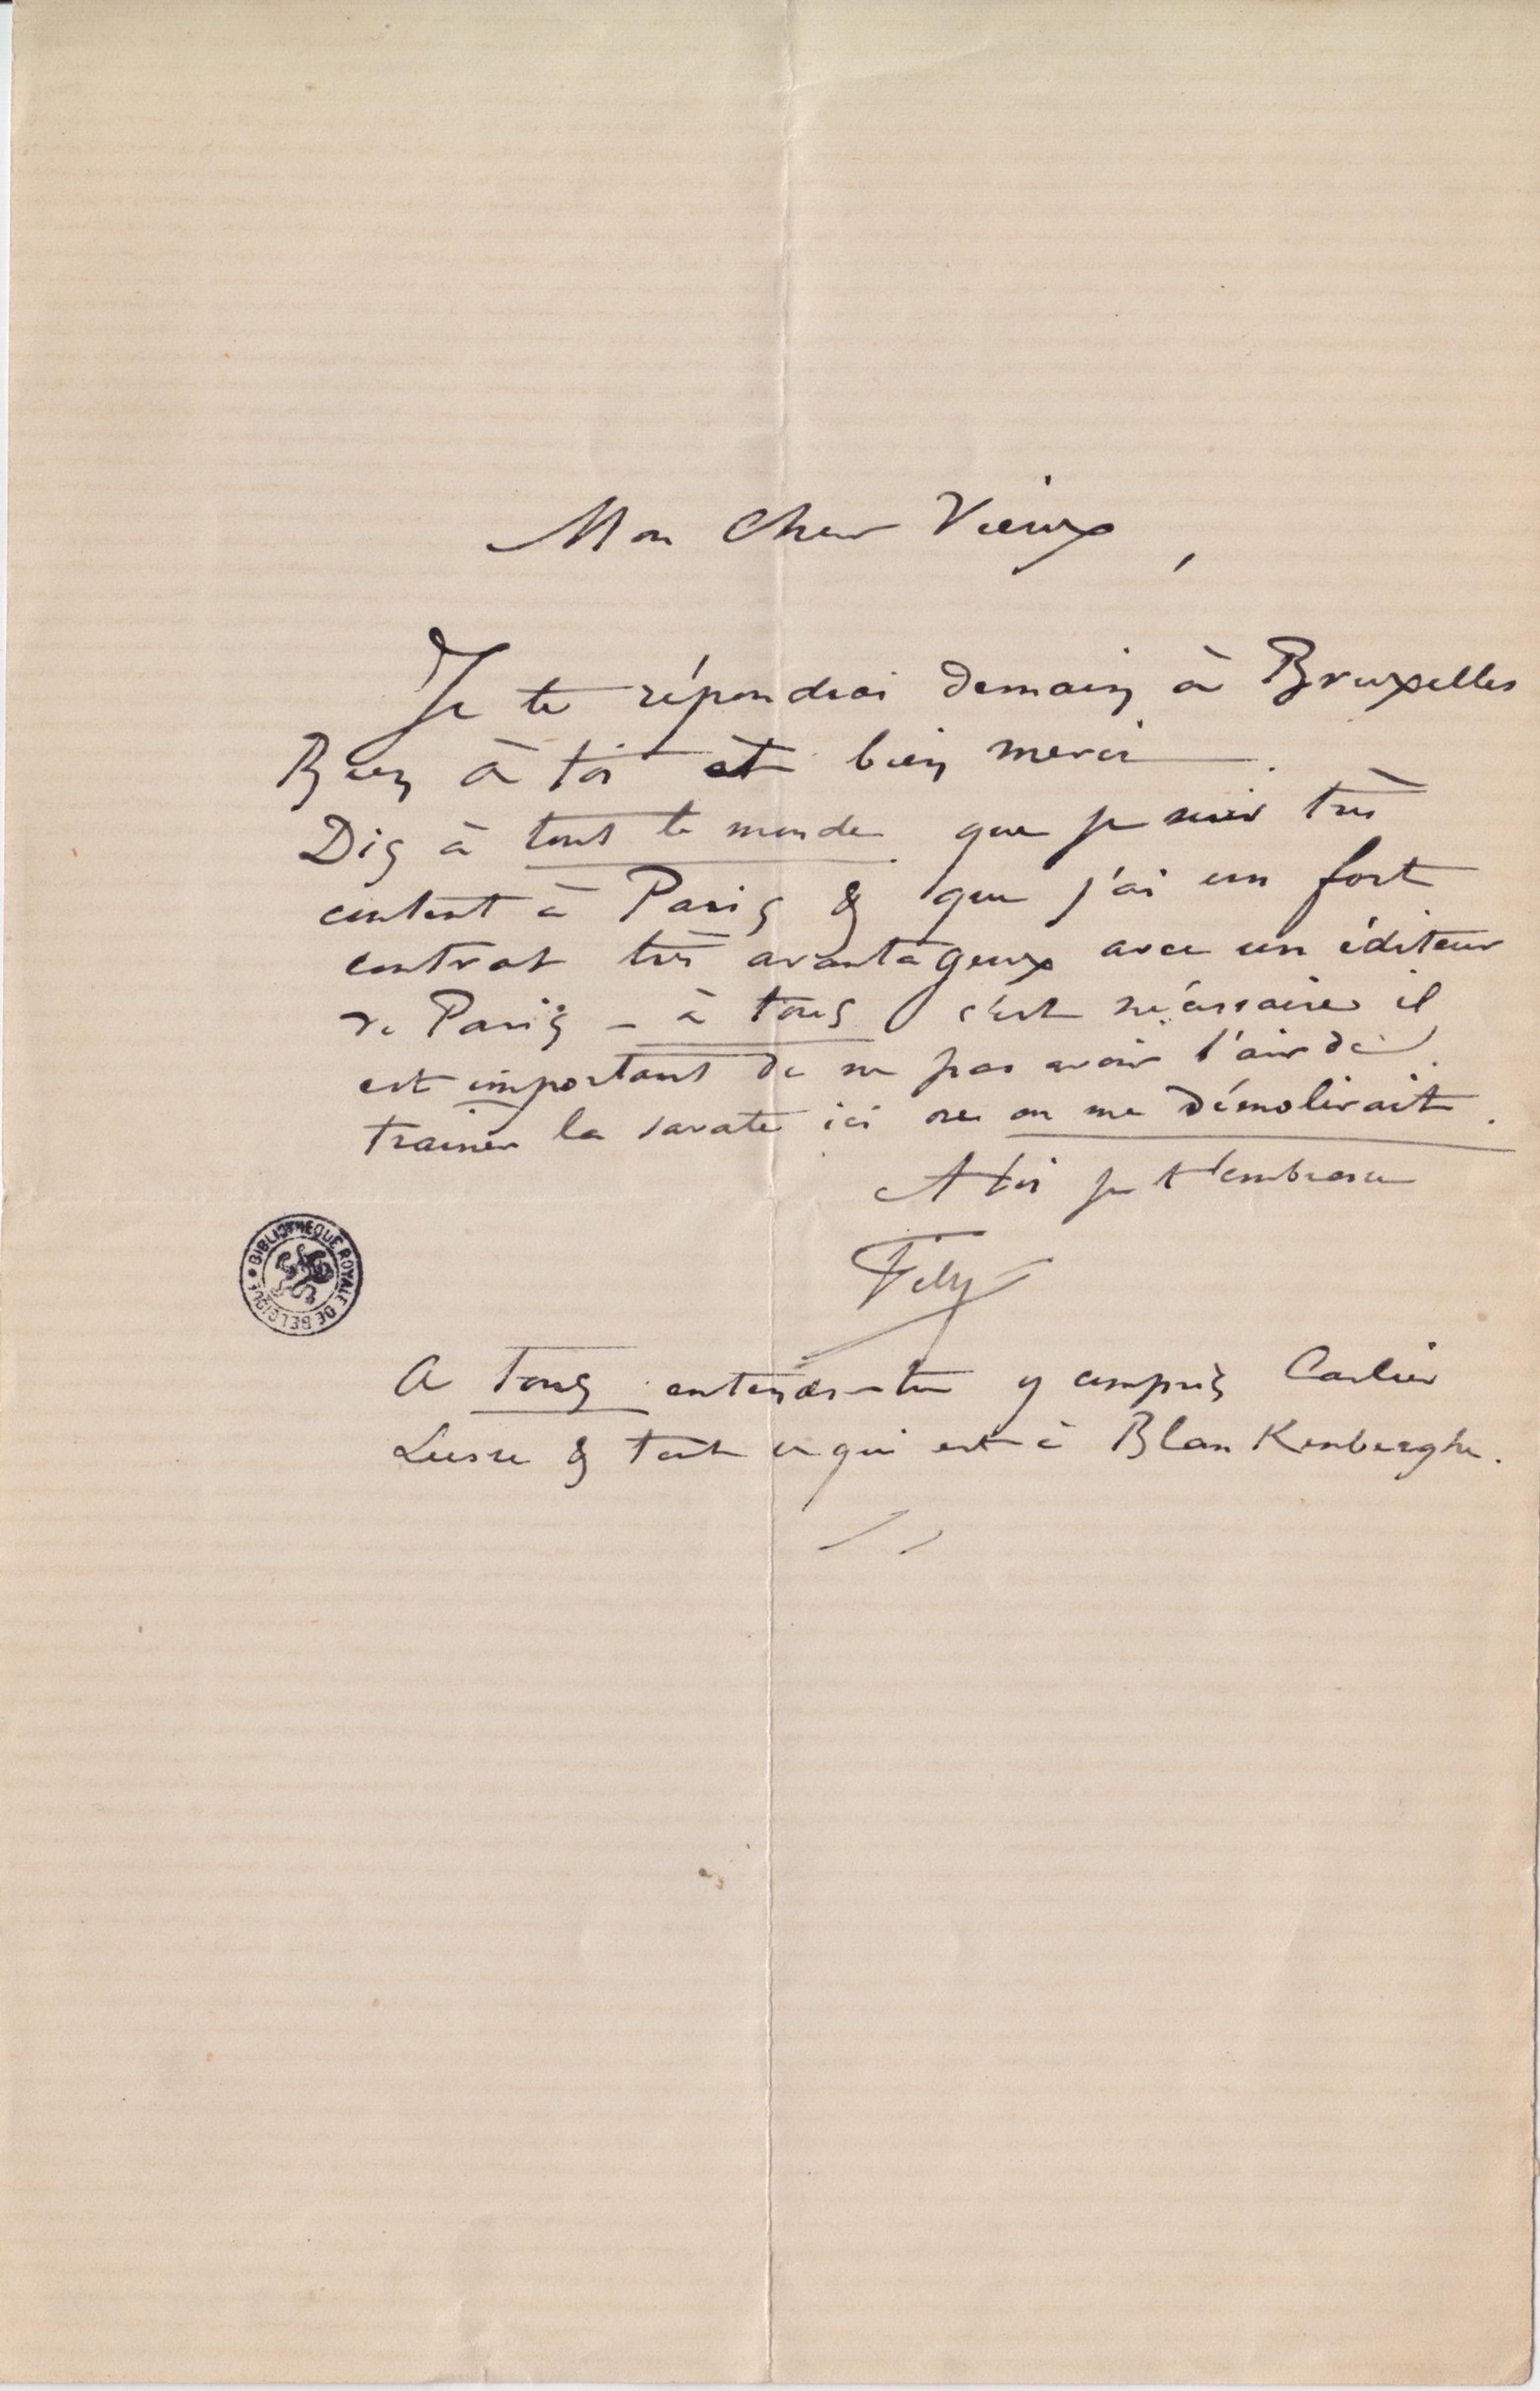 Mon Cher Vieux,
Je te répondrai demain à Bruxelles
Bien à toi et bien merci.
Dis à tout le monde que je suis très
content à Paris & que j'ai un fort
contrat très avantageux avec un éditeur
de Paris – à tous c'est nécessaire il
est important de ne pas avoir l'air de
trainer la savate ici ou on me démolirait.
A toi je t'embrasse
Fély
A Tous entends-tu y compris Carlier
& tout ce qui est à Blankenberghe.
BIBLIOTHEQUE ROYALE DE BELGIQUE